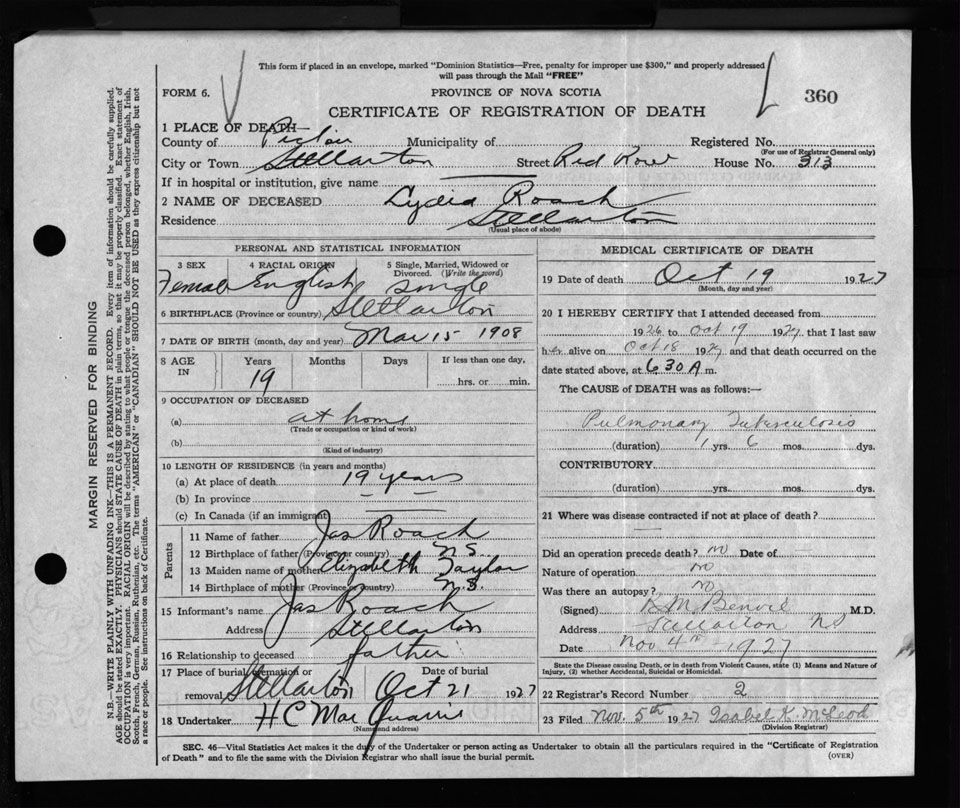 This form if placed in an envelope, marked "Dominion Statistics—Free, penalty for improper use $300," and properly addressed
will pass through the Mail "FREE"
FORM 6.
PROVINCE OF NOVA SCOTIA
360
CERTIFICATE OF REGISTRATION OF DEATH
1 PLACE OF DEATH—
County of Pictou Municipality of Registered No.
(For use of Registrar General only)
City or Town Stellarton Street Red Row House No. 313
If in hospital or institution, give name
2 NAME OF DECEASED Lydia Roach
Residence Stellarton
(Usual place of abode)
PERSONAL AND STATISTICAL INFORMATION
3 SEX 4 RACIAL ORIGIN 5 Single, Married, Widowed or Divorced. (Write the word)
Female English Single
6 BIRTHPLACE (Province or country) Stellarton
7 DATE OF BIRTH (month, day and year) Mar 15 1908
8 AGE IN Years Months Days If less than one day,
19 hrs. or min.
9 OCCUPATION OF DECEASED
(a) at home
(Trade or occupation or kind of work)
(b)
(Kind of industry)
10 LENGTH OF RESIDENCE (in years and months)
(a) At place of death 19 years
(b) In province — —
(c) In Canada (if an immigrant)
Parents
11 Name of father Jas Roach
12 Birthplace of father (Province or country) N S.
13 Maiden name of mother Elizabeth Taylor
14 Birthplace of mother (Province or country) N.S.
15 Informant's name Jas Roach
Address Stellarton
16 Relationship to deceased father
17 Place of burial, cremation or removal Date of burial
Stellarton Oct 21 1927
18 Undertaker H C Mac Quarrie
(Name and address)
MEDICAL CERTIFICATE OF DEATH
19 Date of death Oct 19 1927
(Month, day and year)
20 I HEREBY CERTIFY that I attended deceased from
1926 to Oct 19 1927, that I last saw
her alive on Oct 18 1927 and that death occurred on the
date stated above, at 6.30 A.m.
The CAUSE of DEATH was as follows:—
Pulmonary Tuberculosis
(duration) 1 yrs. 6 mos. dys.
CONTRIBUTORY
(duration) yrs. mos. dys.
21 Where was disease contracted if not at place of death?
—
Did an operation precede death? no Date of —
Nature of operation no
Was there an autopsy? no
(Signed) M. Benvie M.D.
Address Stellarton NS
Date Nov 4th - 1927
State the Disease causing Death, or in death from Violent Causes, state (1) Means and Nature of
Injury, (2) whether Accidental, Suicidal or Homicidal.
22 Registrar's Record Number 2
23 Filed Nov. 5th 1927 Isabel K. McLeod
(Division Registrar)
SEC. 46—Vital Statistics Act makes it the duty of the Undertaker or person acting as Undertaker to obtain all the particulars required in the "Certificate of Registration
of Death" and to file the same with the Division Registrar who shall issue the burial permit.
(OVER)
MARGIN RESERVED FOR BINDING
N.B.—WRITE PLAINLY WITH UNFADING INK—THIS IS A PERMANENT RECORD. Every item of information should be carefully supplied.
AGE should be stated EXACTLY. PHYSICIANS should STATE CAUSE OF DEATH in plain terms, so that it may be properly classified. Exact statement of
OCCUPATION is very important. RACIAL ORIGIN will be described by stating to what people or tongue the deceased person belonged, whether English, Irish,
Scotch, French, German, Russian, Ruthenian, etc. The terms "AMERICAN" or "CANADIAN" SHOULD NOT BE USED as they express citizenship but not
a race or people. See instructions on back of Certificate.